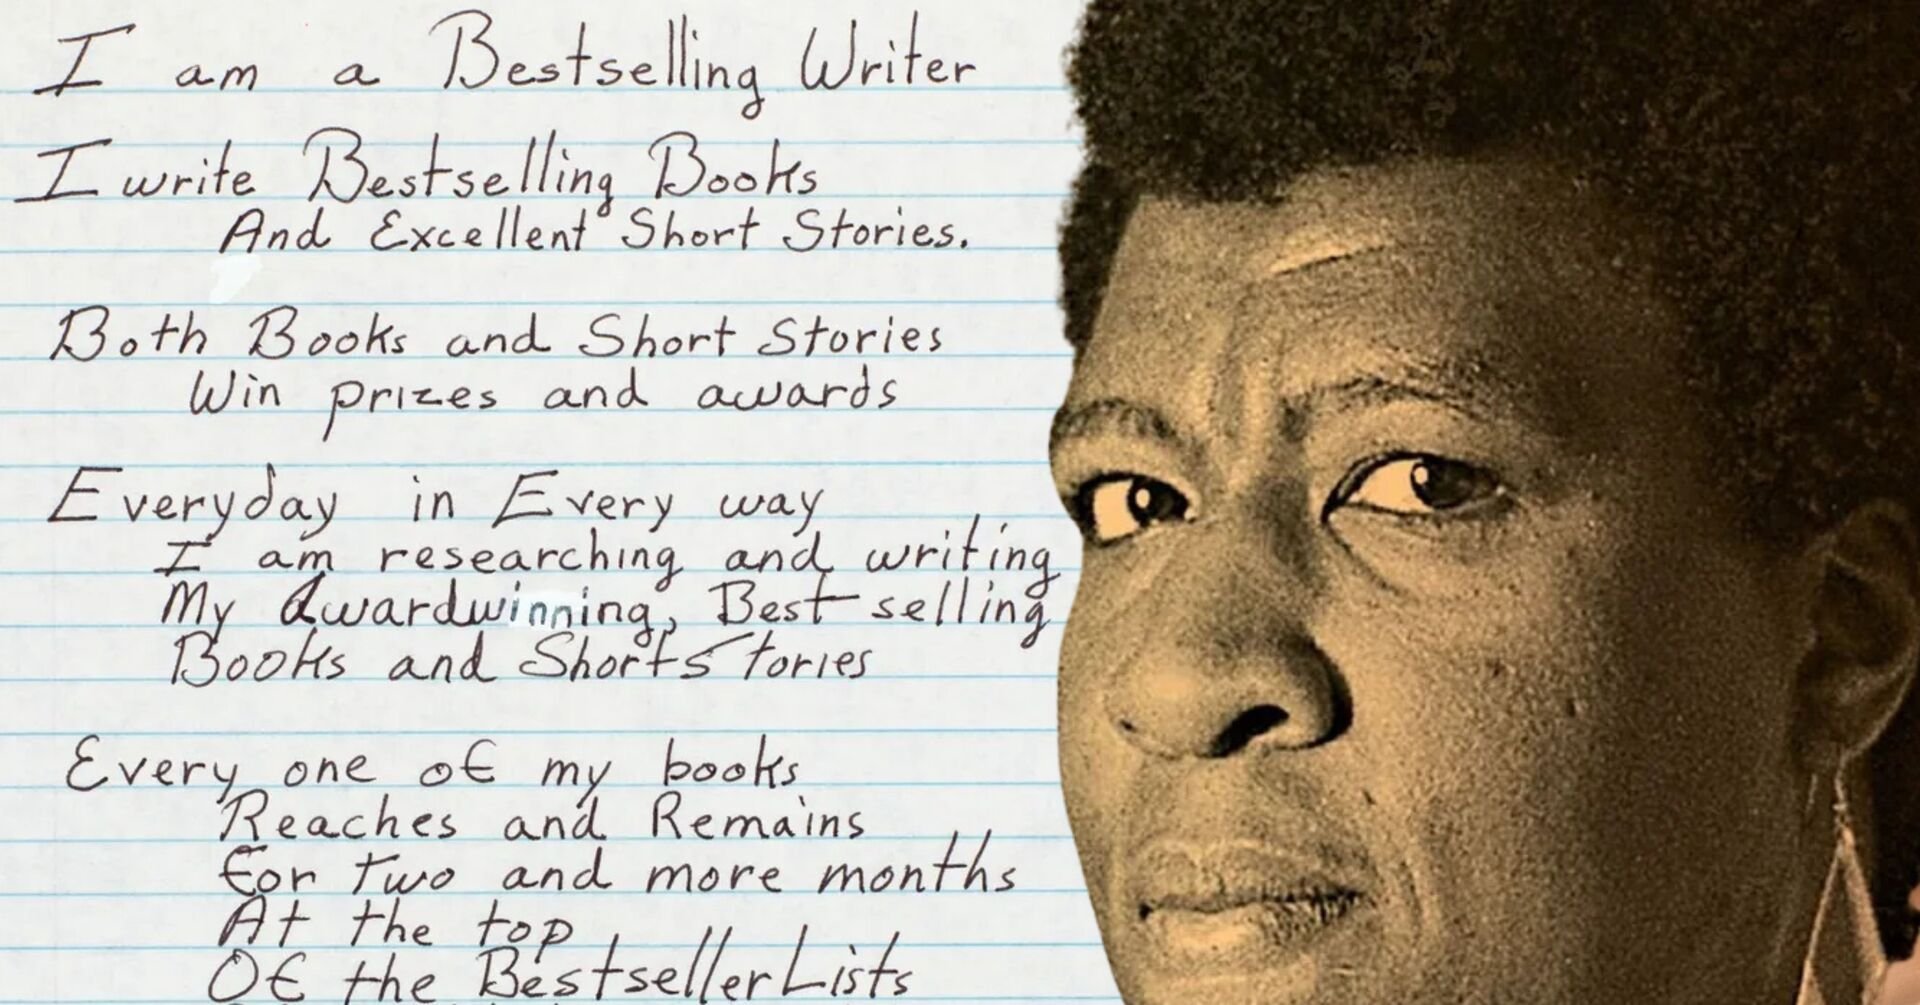 I am a Bestselling Writer
I write Bestselling Books
And Excellent Short Stories.
Both Books and Short Stories
Win prizes and awards
Everyday in Every way
I am researching and writing
My Awardwinning, Best selling
Books and Short Stories
Every one of my books
Reaches and Remains
for two and more months
At the top
Of the Bestseller Lists